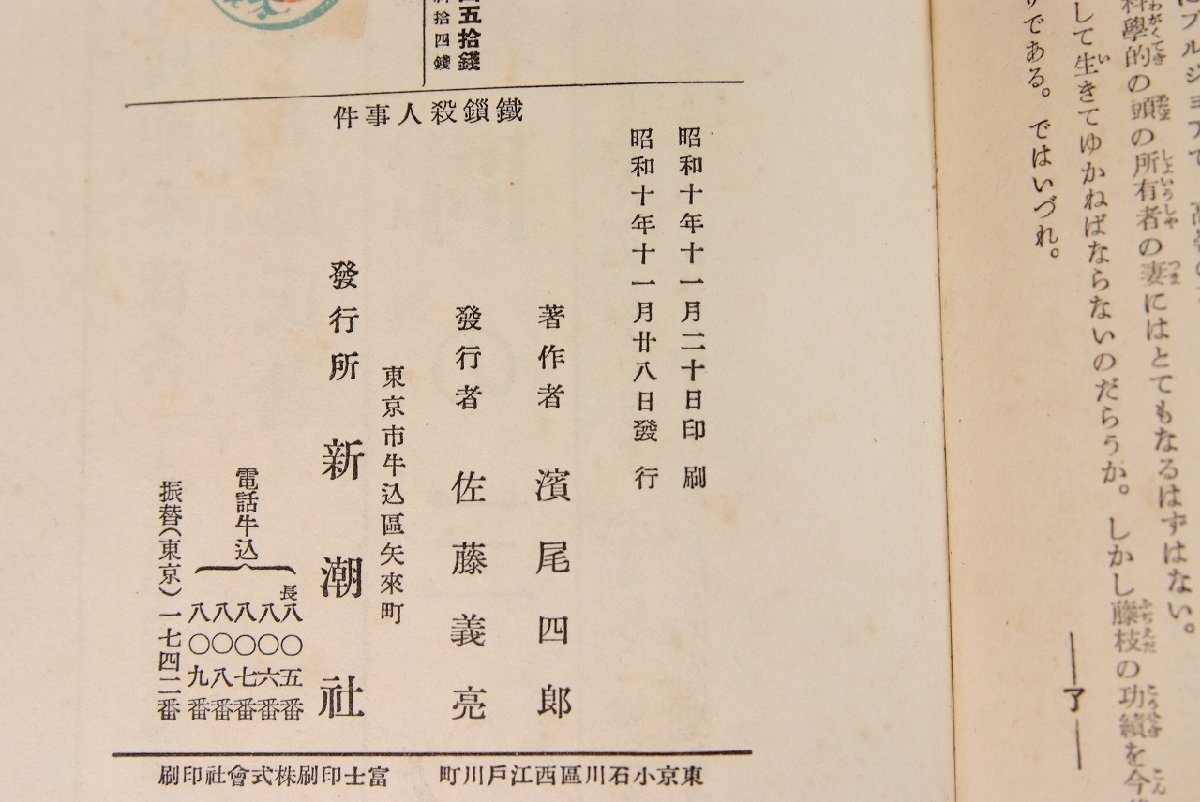 科學的の頭の所有者の妻にはとてもなるはずはない。
して生きてゆかねばならないのだらうか。しかし藤枝の功績を今
りである。ではいづれ。
―了―
五拾錢
拾四錢
鐵鎖殺人事件
昭和十年十一月二十日印刷
昭和十年十一月廿八日發行
著作者 濱尾四郎
發行者 佐藤義亮
東京市牛込區矢來町
發行所 新潮社
電話牛込
長八〇五番
八〇六番
八〇七番
八〇八番
八〇九番
振替(東京)一七四二番
東京小石川區西江戶川町 富士印刷株式會社印刷